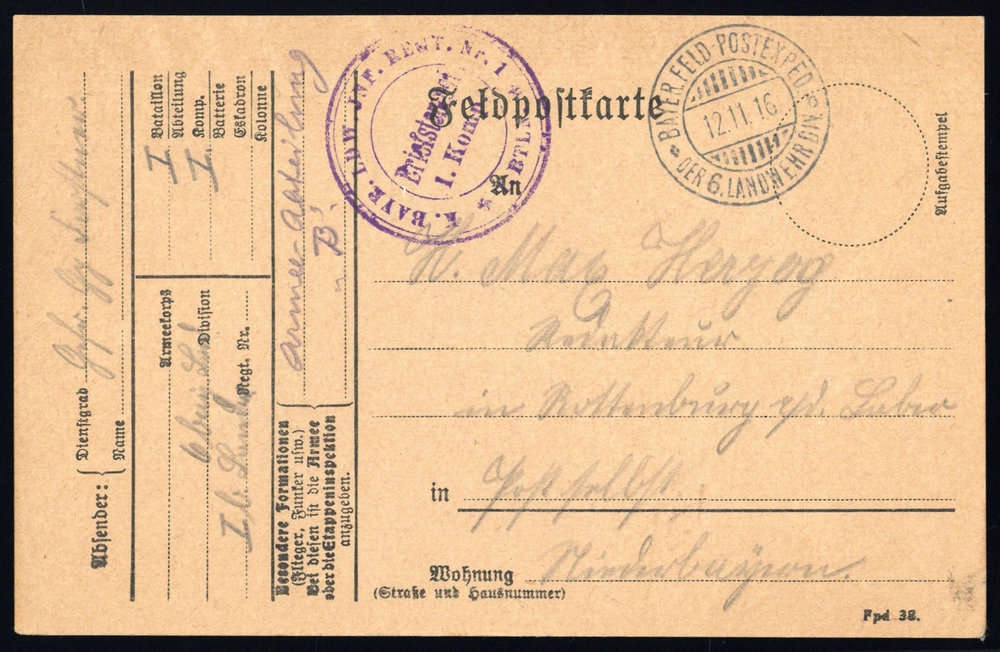 Feldpostkarte
An
H. Max Herzog
Redakteur
in Rottenburg a/d. Laber
in Post selbst.
Wohnung Niederbayern.
(Straße und Hausnummer)
Fpd 38.
Aufgabestempel
BAYER. FELD-POSTEXPED.
12.11.16
DER 6. LANDWEHR DIV.
K. BAYR. LDW. INF. REGT. Nr. 1
BTLN.
Briefstempel
1. Komp.
Absender:
Dienstgrad Gefr.
Name
I Bataillon
Abteilung
I Komp.
Batterie
Eskadron
Kolonne
Armeekorps
6 bay. Ld. Division
I b. Regt. Nr.
Armee-Abteilung
„B“
Besondere Formationen
(Flieger, Funker usw.)
Bei diesen ist die Armee
oder die Etappeninspektion
anzugeben.